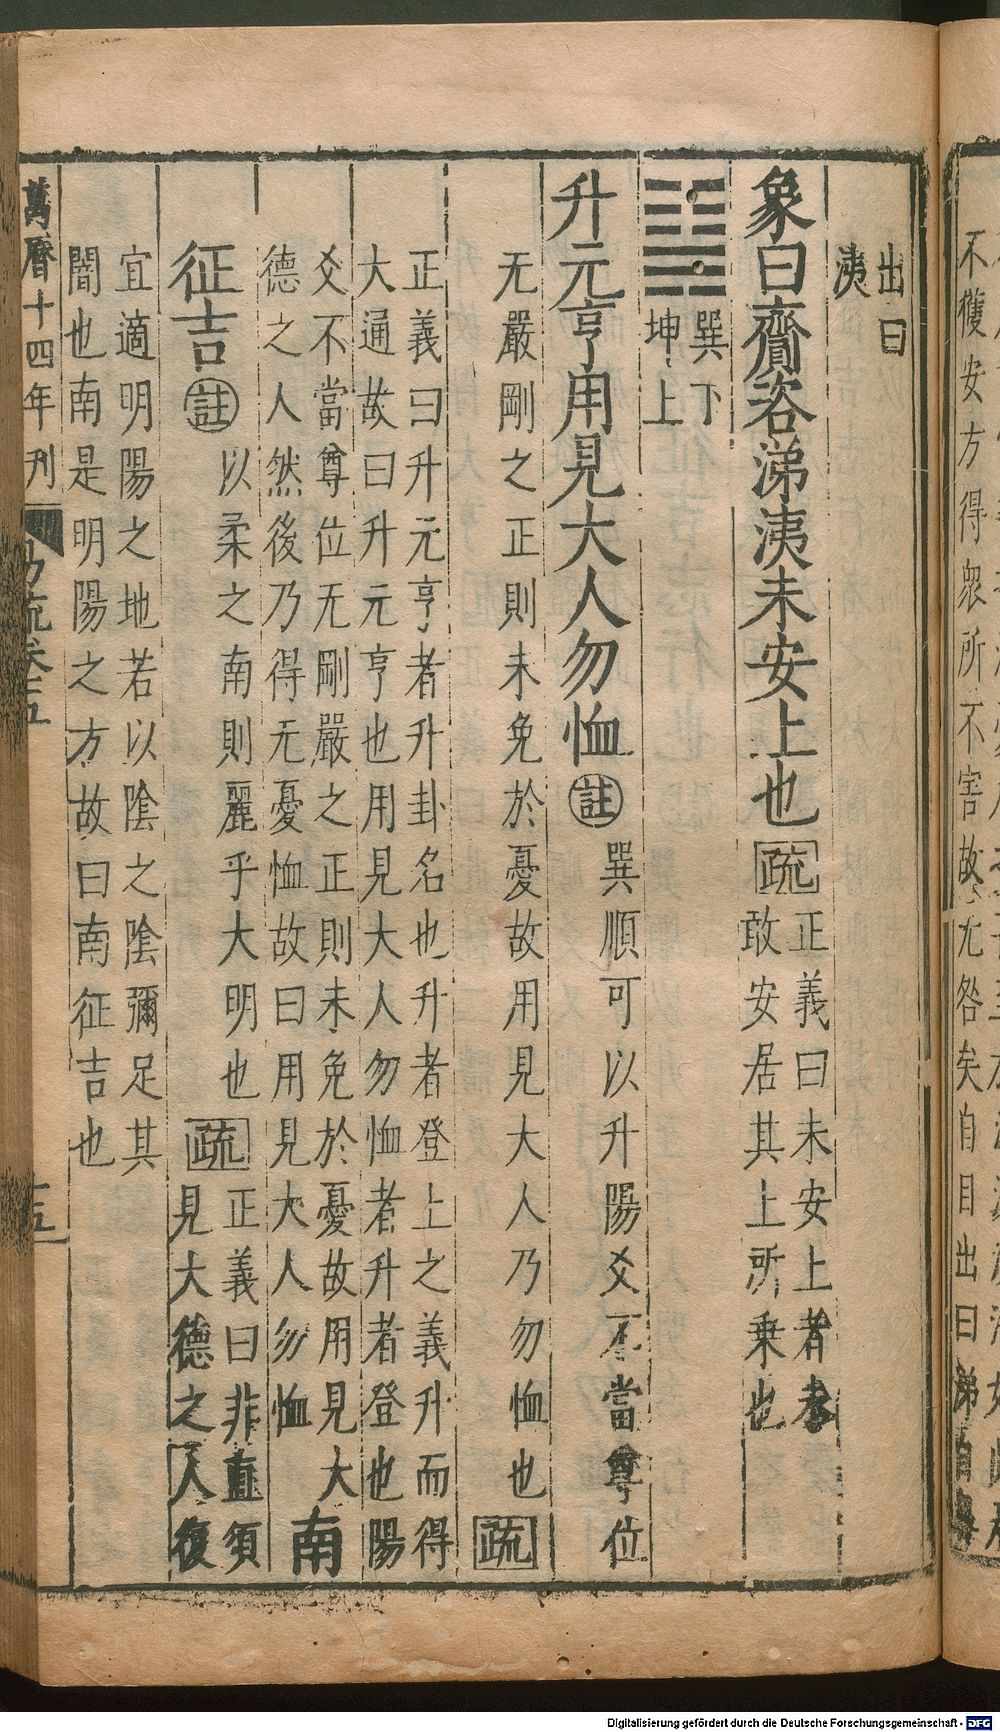 不獲安方得衆所不害故无咎矣自目出曰涕自鼻
出曰
洟
象曰齎咨涕洟未安上也疏正義曰未安上者未
敢安居其上所乗也
巽下
坤上
升元亨用見大人勿恤註巽順可以升陽爻不當尊位
无嚴剛之正則未免於憂故用見大人乃勿恤也疏
正義曰升元亨者升卦名也升者登上之義升而得
大通故曰升元亨也用見大人勿恤者升者登也陽
爻不當尊位无剛嚴之正則未免於憂故用見大
德之人然後乃得无憂恤故曰用見大人勿恤
南
征吉註以柔之南則麗乎大明也疏正義曰非直須
見大德之人復
宜適明陽之地若以陰之陰彌足其
闇也南是明陽之方故曰南征吉也
萬曆十四年刋
易疏卷五
Digitalisierung gefördert durch die Deutsche Forschungsgemeinschaft - DFG